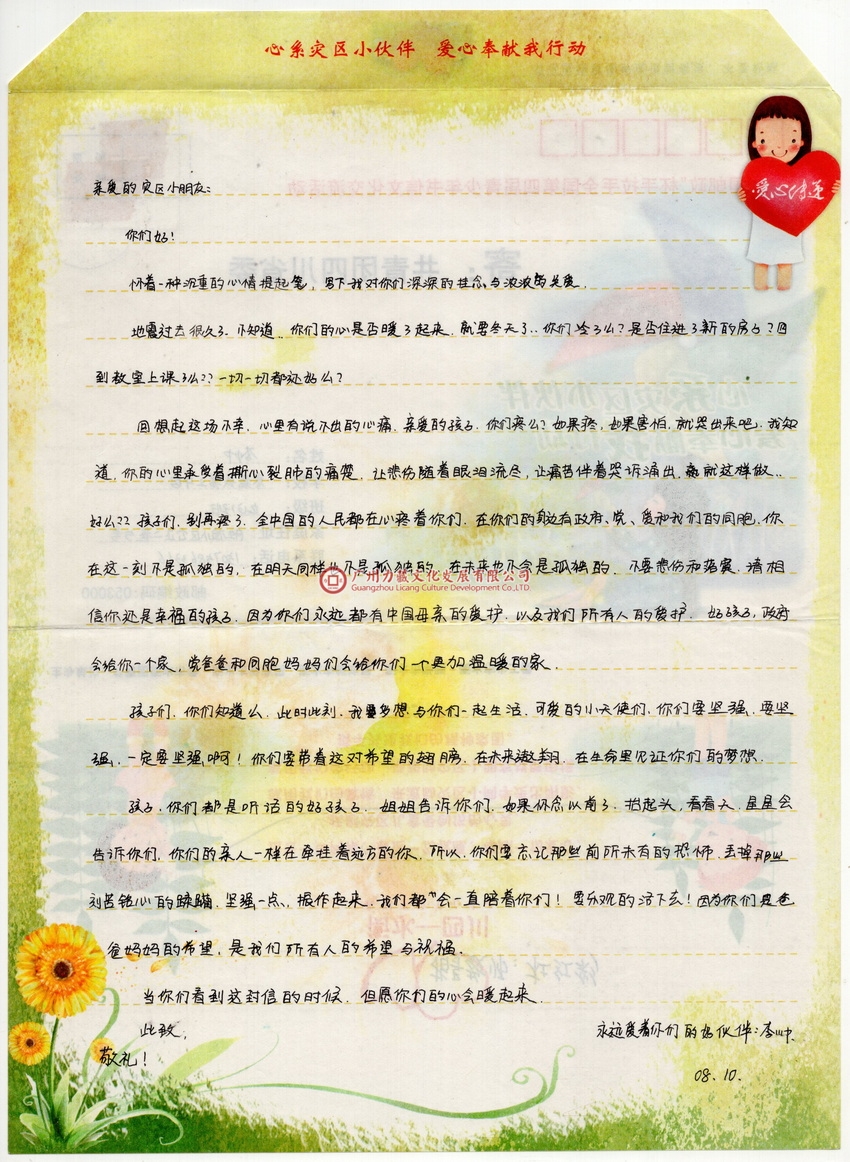 心系灾区小伙伴 爱心奉献我行动
爱心传递
亲爱的灾区小朋友：
你们好！
怀着一种沉重的心情提起笔，写下我对你们深深的挂念与浓浓的关爱．
地震过去很久了．不知道．．你们的心是否暖了起来．就要冬天了．．你们冷了么？是否住进了新的房子？回
到教室上课了么？？一切一切都还好么？
回想起这场不幸．心里有说不出的心痛．亲爱的孩子．你们疼么？如果疼．如果害怕．就哭出来吧．我知
道，你的心里承受着撕心裂肺的痛楚．让悲伤随着眼泪流尽，让痛苦伴着哭诉涌出．就这样做．．
好么？？孩子们．别再疼了．全中国的人民都在心疼着你们．在你们的身边有政府、党、我和我们的同胞．你
在这一刻不是孤独的．在明天同样也不是孤独的．在未来也不会是孤独的．不要悲伤和落寞．请相
广州力藏文化发展有限公司
Guangzhou Licang Culture Development Co.,LTD.
信你还是幸福的孩子．因为你们永远都有中国母亲的爱护．以及我们所有人的爱护．好孩子，政府
会给你一个家，党爸爸和同胞妈妈们会给你们一个更加温暖的家．
孩子们．你们知道么．此时此刻．我多想与你们一起生活．可爱的小天使们．你们要坚强．要坚
强．一定要坚强啊！你们要带着这对希望的翅膀．在未来遨翔．在生命里见证你们的梦想．
孩子．你们都是听话的好孩子．姐姐告诉你们．如果怀念以前了．抬起头，看看天．星星会
告诉你们．你们的亲人一样在牵挂着远方的你．所以．你们要忘记那些前所未有的恐怖．丢掉那些
刻苦铭心的蹂躏．坚强一点、振作起来．我们都会一直陪着你们！要乐观的活下去！因为你们是爸
爸妈妈的希望，是我们所有人的希望与祝福．
当你们看到这封信的时候．但愿你们的心会暖起来．
此致，
敬礼！
永远爱着你们的好伙伴：李
08．10．